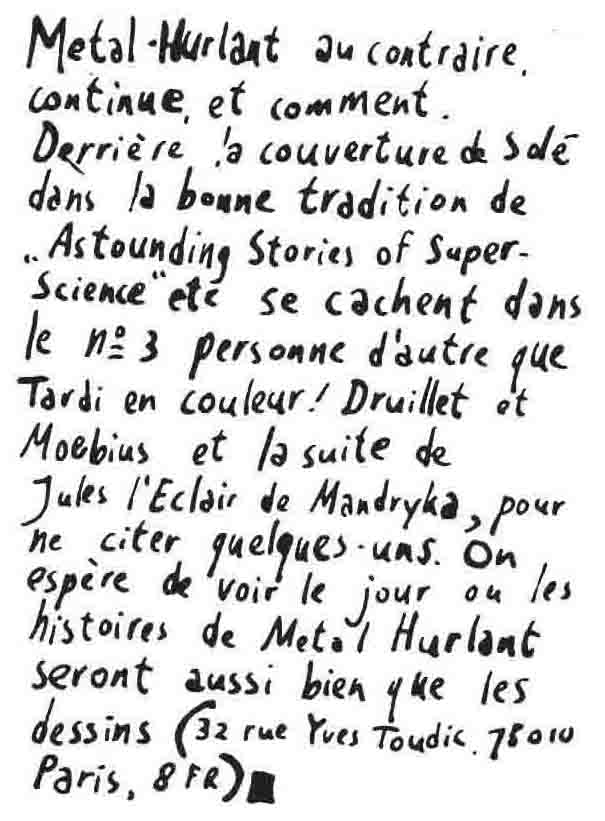 Metal-Hurlant au contraire,
continue, et comment.
Derrière la couverture de Solé
dans la bonne tradition de
„Astounding Stories of Super-
Science" etc se cachent dans
le nº 3 personne d'autre que
Tardi en couleur! Druillet et
Moebius et la suite de
Jules l'Eclair de Mandryka, pour
ne citer quelques-uns. On
espère de voir le jour ou les
histoires de Metal Hurlant
seront aussi bien que les
dessins (32 rue Yves Toudic. 75010
Paris, 8 FR)